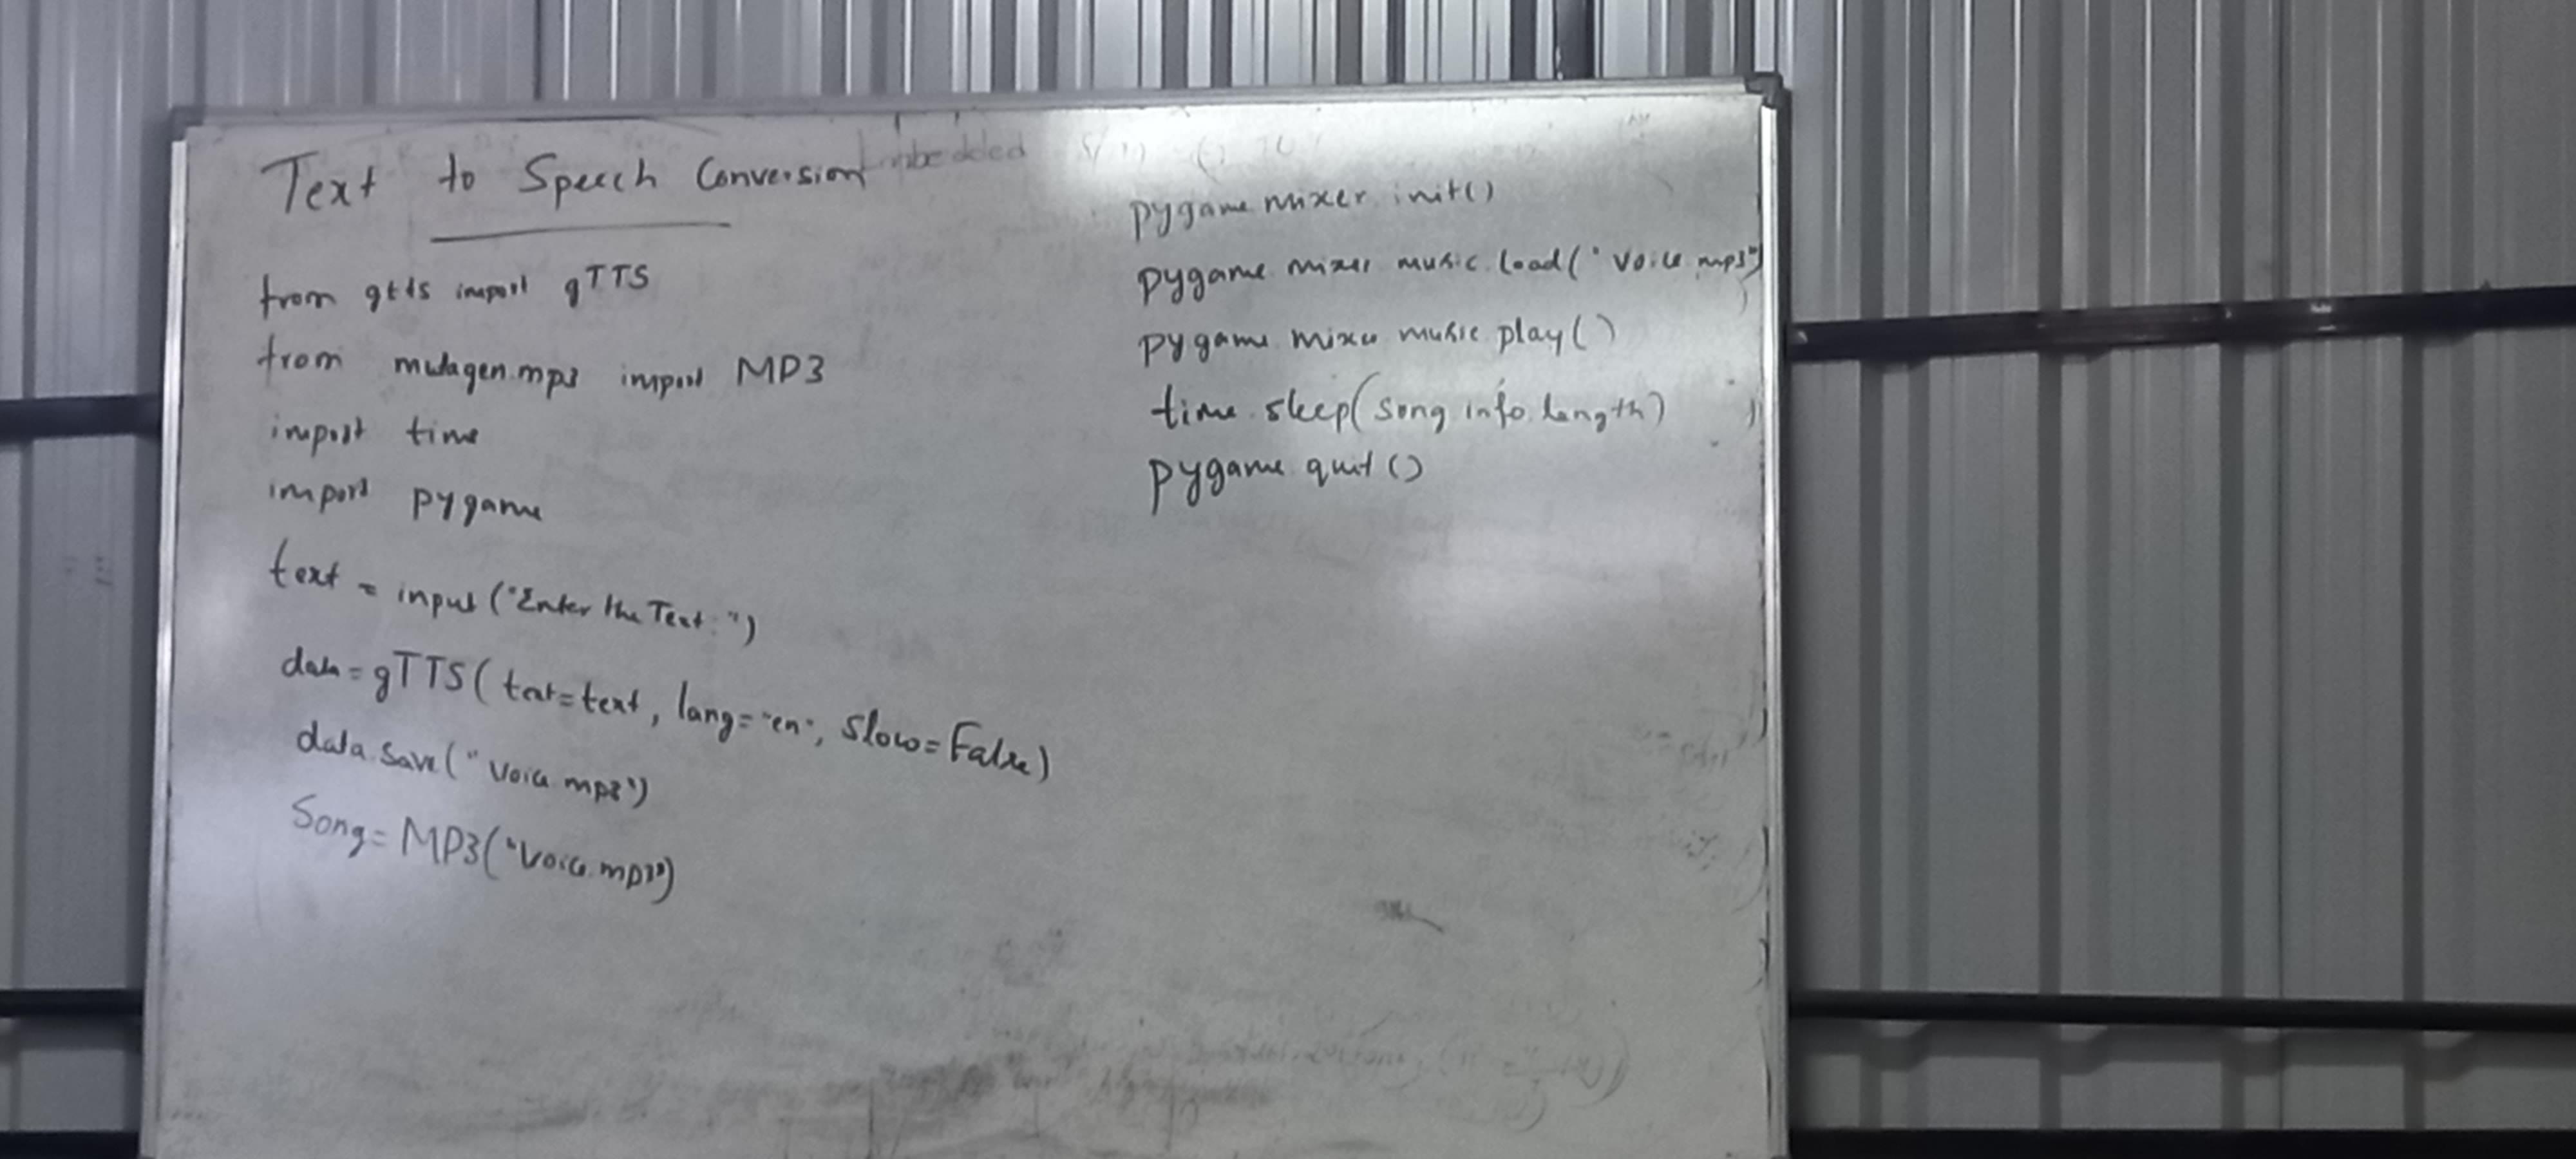 Text to Speech Conversion
from gtts import gTTS
from mutagen.mp3 import MP3
import time
import pygame
text = input ("Enter the Text: ")
data = gTTS( text=text, lang="en", slow=False)
data.save("Voice.mp3")
Song= MP3("Voice.mp3")
pygame.mixer.init()
pygame.mixer.music.load("Voice.mp3")
pygame.mixer.music.play()
time.sleep(song.info.length)
pygame.quit()